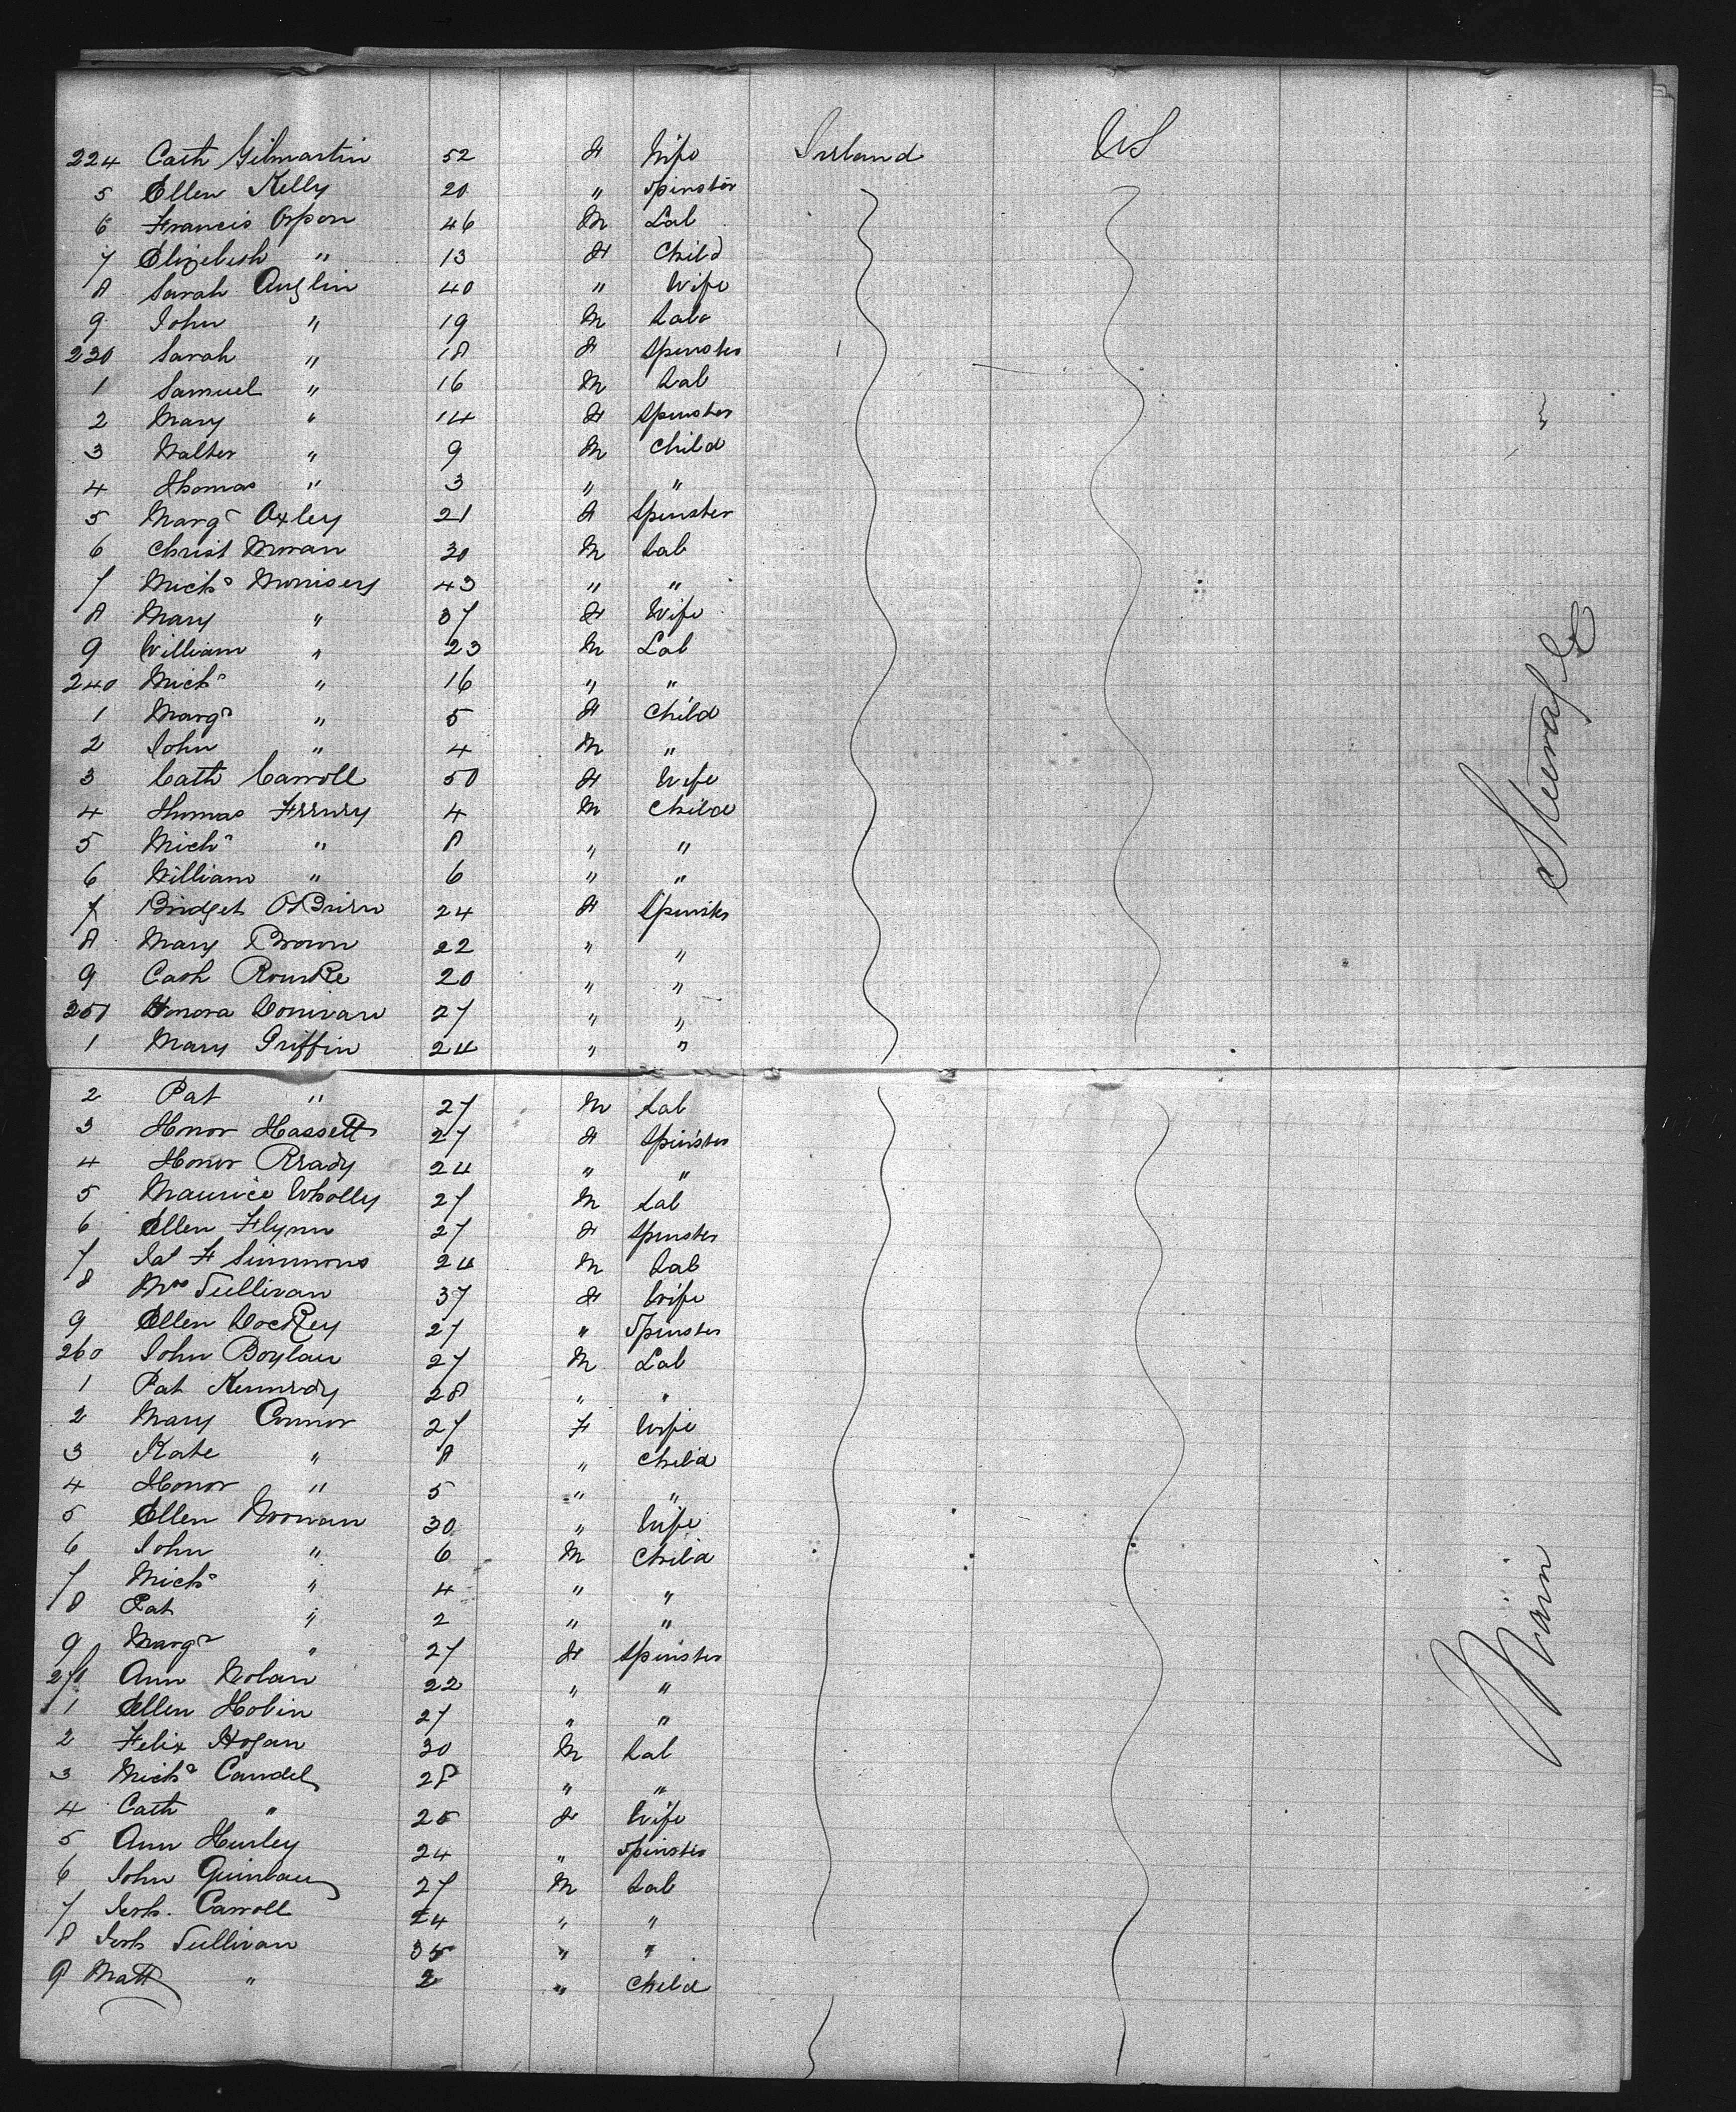 224 Cath Gilmartin 52 F Wife Ireland US
5 Ellen Kelly 20 " Spinster
6 Francis 46 M Lab
7 Elizebeth " 13 F Child
8 Sarah Anglin 40 " Wife
9 John " 19 M Lab
230 Sarah " 18 F Spinster
1 Samuel " 16 M Lab
2 Mary " 14 F Spinster
3 Walter " 9 M Child
4 Thomas " 3 " "
5 Margt Oxley 21 F Spinster
6 Christ Moran 30 M Lab
7 Michl 43 " "
8 Mary " 37 F Wife
9 William " 23 M Lab
240 Michl " 16 " "
1 Margt " 5 F Child
2 John " 4 M "
3 Cath Carroll 50 F Wife
4 Thomas 4 M Child
5 Michl " 8 " "
6 William " 6 " "
7 Bridget O'Brien 24 F Spinster
8 Mary Brown 22 " "
9 Cath Rourke 20 " "
250 Honora Donivan 27 " "
1 Mary Griffin 24 " "
2 Pat " 27 M Lab
3 Honor Hassett 27 F Spinster
4 Honor Brady 24 " "
5 Maurice Wholly 27 M Lab
6 Ellen Flynn 27 F Spinster
7 Jas F Simmons 24 M Lab
8 Mrs Sullivan 37 F Wife
9 Ellen Dockey 27 " Spinster
260 John Boylan 27 M Lab
1 Pat Kennedy 28 " "
2 Mary Connor 27 F Wife
3 Kate " 8 " Child
4 Honor " 5 " "
5 Ellen Noonan 30 " Wife
6 John " 6 M Child
7 Michl " 4 " "
8 Pat " 2 " "
9 Margt " 27 F Spinster
270 Ann Nolan 22 " "
1 Ellen Hobin 27 " "
2 Felix Hogan 30 M Lab
3 Michl Caudel 28 " "
4 Cath " 25 F Wife
5 Ann Hurley 24 " Spinster
6 John Quinlan 27 M Lab
7 Jerh. Carroll 24 " "
8 Jerh Sullivan 35 " "
9 Matt " 2 " Child
Steerage
Main